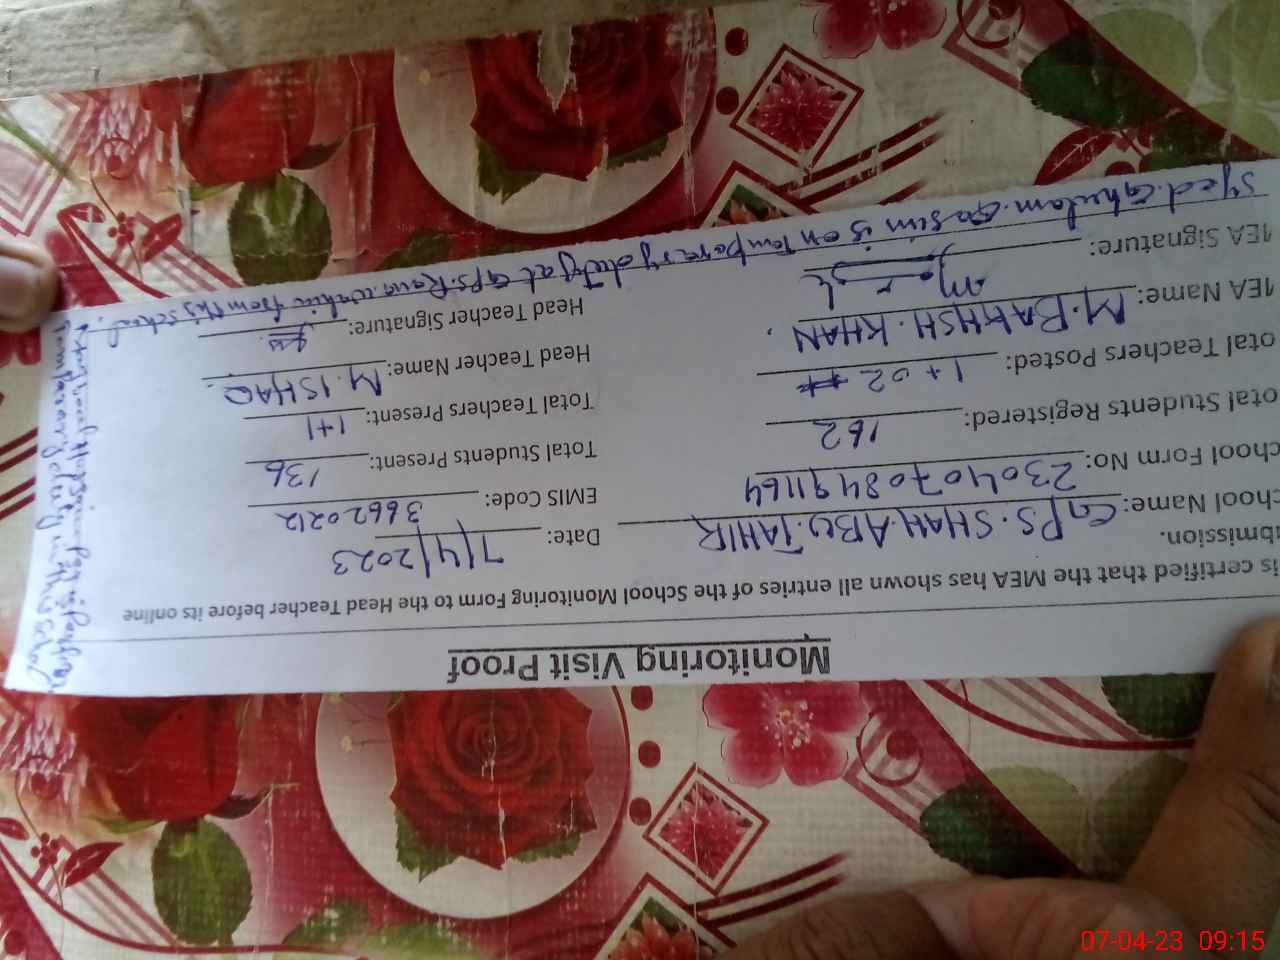 Monitoring Visit Proof
is certified that the MEA has shown all entries of the School Monitoring Form to the Head Teacher before its online
bmission.
hool Name: GPS. SHAH. ABU. TAHIR Date: 7/4/2023
chool Form No: 2304070849 1164 EMIS Code: 36620212
otal Students Registered: 162 Total Students Present: 136
otal Teachers Posted: 1+02 Total Teachers Present: 1+1
MEA Name: M. BAKHSH. KHAN. Head Teacher Name: M. ISHAQ.
MEA Signature: Head Teacher Signature:
Syed. Ghulam. Qasim is on Temporary duty at GPS. from this school.
Temporary duty in this school
07-04-23 09:15